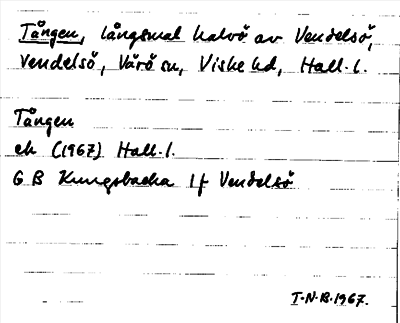 Tången, långsmal halvö av Vendelsö,
Vendelsö, Värö sn, Viske hd, Hall. l.
Tången
ek (1967) Hall. l.
G B Kungsbacka 1f Vendelsö
T.N.B. 1967.